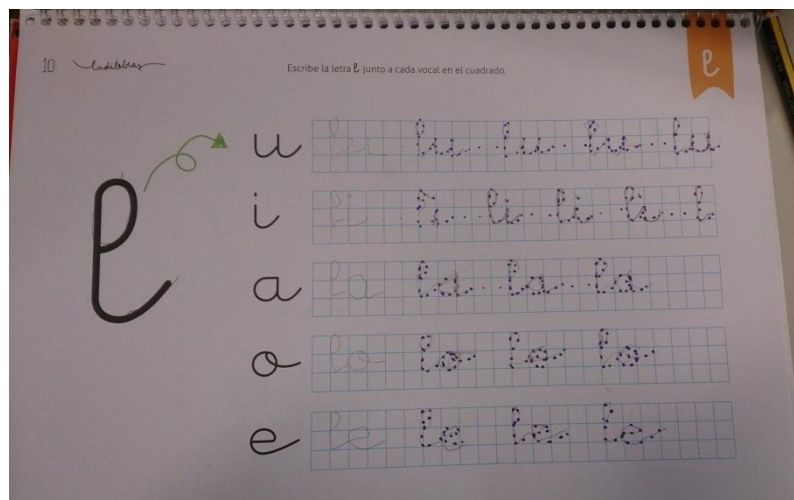 10 Ludiletras
Escribe la letra l junto a cada vocal en el cuadrado.
l
l
u lu lu lu lu lu
i li li li li li l
a la la la la
o lo lo lo lo
e le le le le